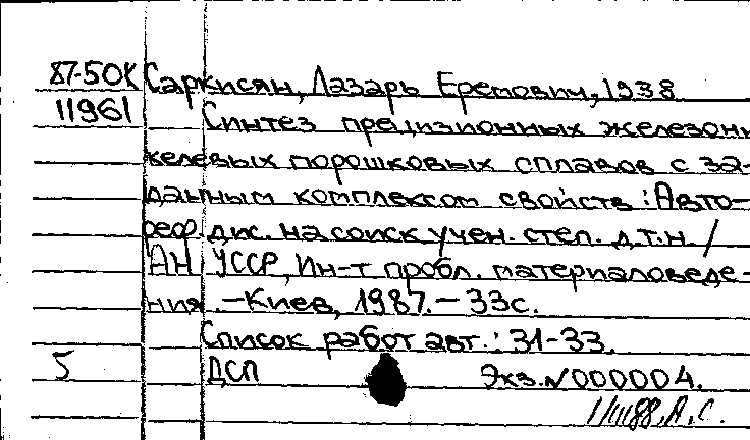 87-50К Саркисян, Лазарь Еремович, 1938
11961 Синтез прецизионных железони
келевых порошковых сплавов с за-
данным комплексом свойств : Авто-
реф. дис. на соиск учен. степ. д.т.н. /
АН УССР, Ин-т пробл. материаловеде-
ния. - Киев, 1987. - 33с.
Список работ авт.: 31-33.
5 ДСП Экз. N 000004.
А. С.